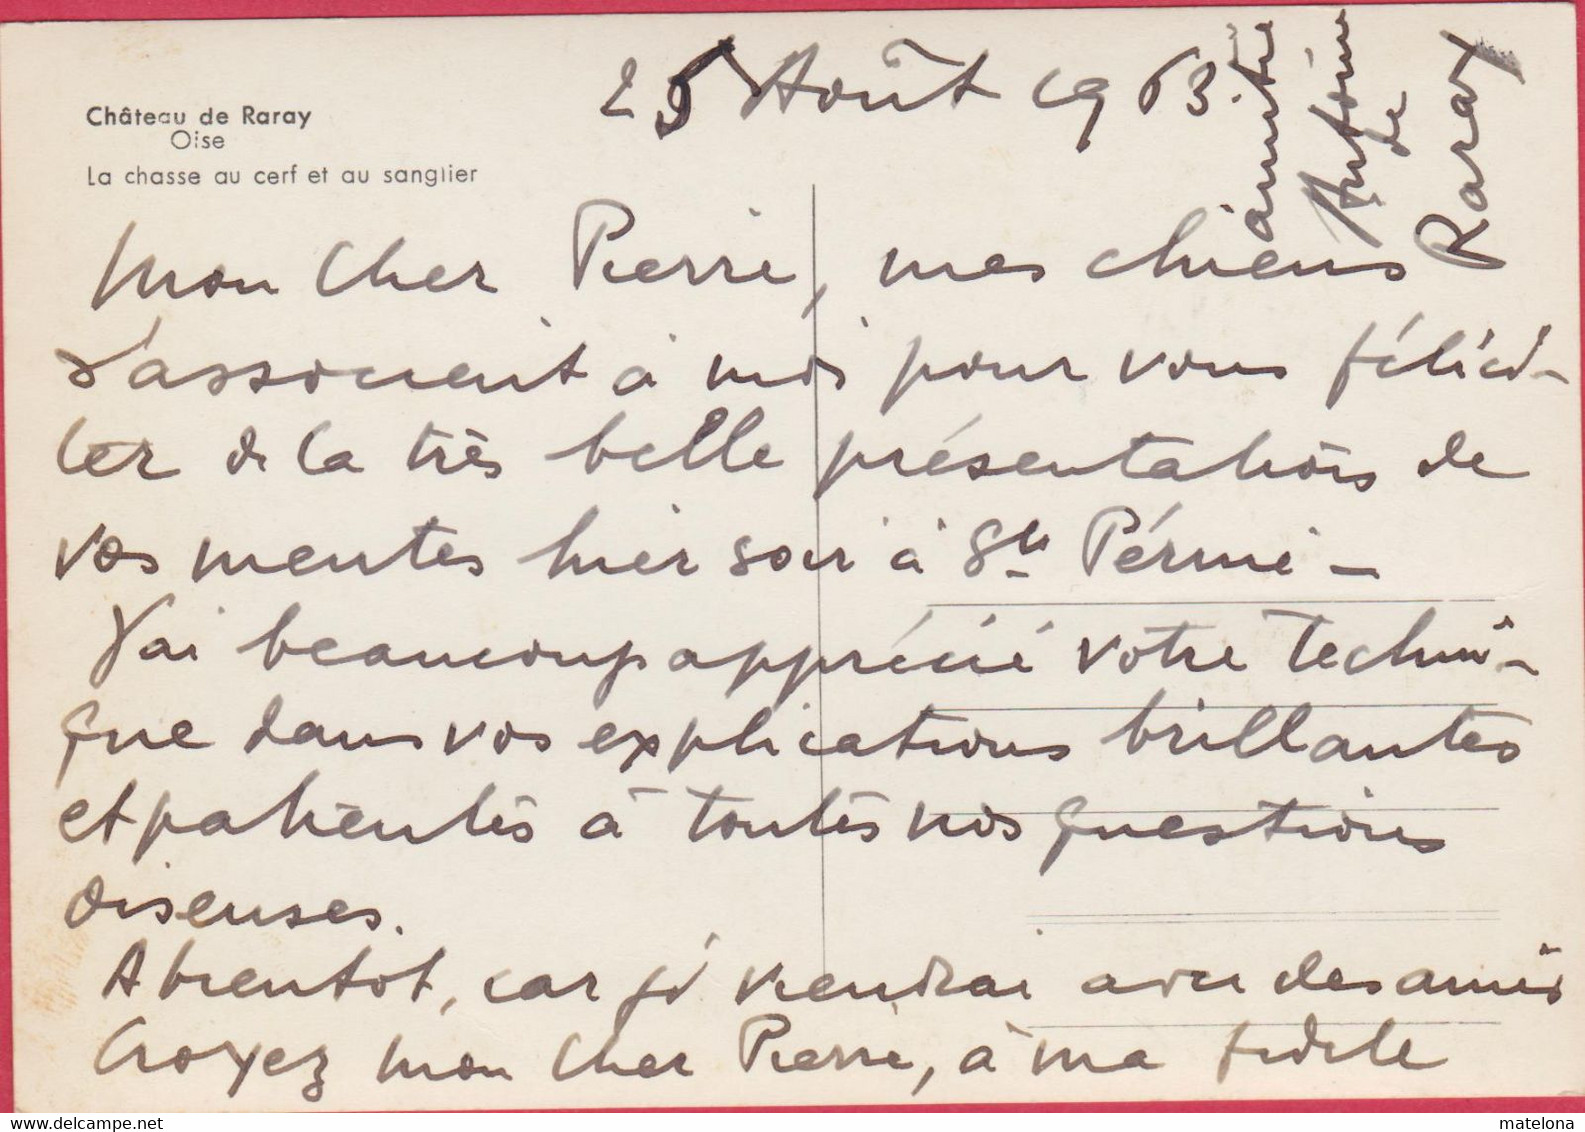 Château de Raray
Oise
La chasse au cerf et au sanglier
25 Août 1963.
Mon Cher Pierre, mes chiens
s'associent à moi pour vous félici-
ter de la très belle présentation de
vos meutes hier soir à Ste Périne -
J'ai beaucoup apprécié votre techni-
que dans vos explications brillantes
et patientes à toutes nos questions
oiseuses.
A bientôt, car je viendrai avec des amis
Croyez mon Cher Pierre, à ma fidèle
amitié
Antoine
de
Raray
www.delcampe.net
matelona